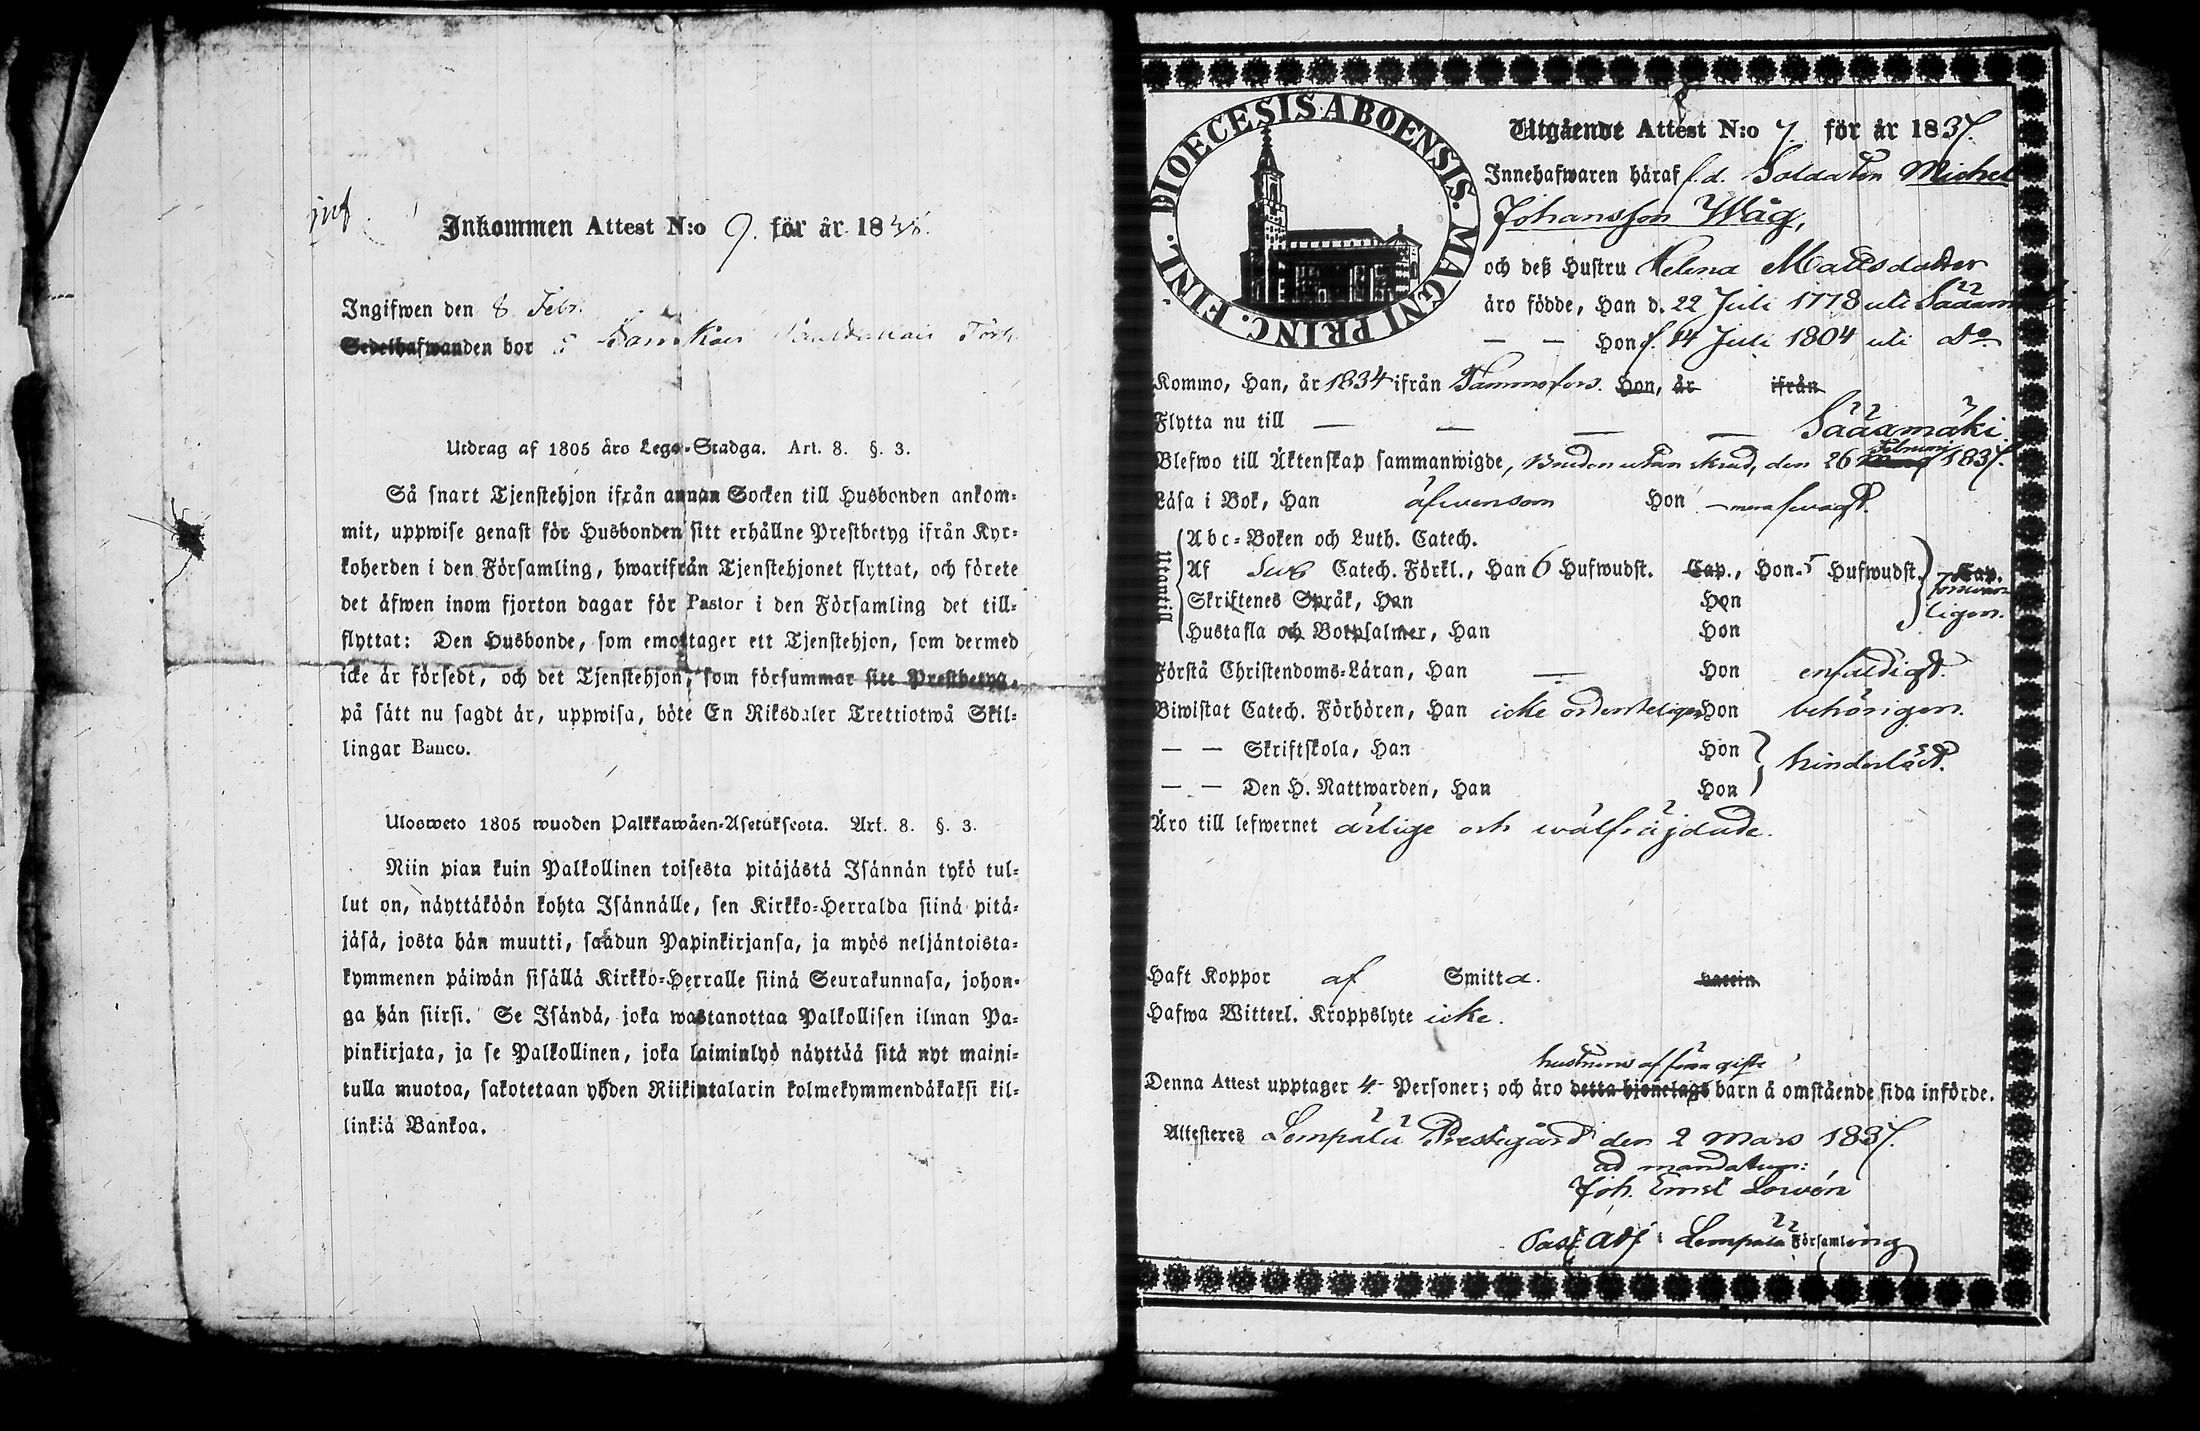 Inkommen Attest N:o 9. för år 18
Ingifwen den 8 Febr.
Sedelhafwanden bor
Utdrag af 1805 års Lego-Stadga. Art. 8. §. 3.
Så snart Tjenstehjon ifrån annan Socken till Husbonden ankom-
mit, uppwise genast för Husbonden sitt erhållne Prestbetyg ifrån Kyr-
koherden i den Församling, hwarifrån Tjenstehjonet flyttat, och förete
det äfwen inom fjorton dagar för Pastor i den Församling det till-
flyttat: Den Husbonde, som emottager ett Tjenstehjon, som dermed
icke är försedt, och det Tjenstehjon, som försummar sitt Prestbetyg,
på sätt nu sagdt är, uppwisa, böte En Riksdaler Trettiotwå Skil-
lingar Banco.
Ulosweto 1805 wuoden Palkkawäen-Asetuksesta. Art. 8. §. 3.
Niin pian kuin Palkollinen toisesta pitäjästä Isännän tykö tul-
lut on, näyttäköön kohta Isännälle, sen Kirkko-Herralda siinä pitä-
jäsä, josta hän muutti, saadun Papinkirjansa, ja myös neljäntoista-
kymmenen päiwän sisällä Kirkko-Herralle siinä Seurakunnasa, johon-
ga hän siirsi. Se Isändä, joka wastanottaa Palkollisen ilman Pa-
pinkirjata, ja se Palkollinen, joka laiminlyö näyttää sitä nyt maini-
tulla muotoa, sakotetaan yhden Riikintalarin kolmekymmendäkaksi kil-
linkiä Bankoa.
DIOECESIS ABOENSIS. MAGNI PRINC. FINL.
Utgående Attest N:o 7. för år 1837.
Innehafwaren häraf f.d. Soldaten Michel
Johansson Wåg,
och deß Hustru Helena Mattsdotter
äro födde, Han d. 22 Juli 1778 uti Sääxmäki
— — Hon d. 14 Juli 1804 uti Do
Kommo, Han, år 1834 ifrån Tammerfors. Hon, år ifrån
Flytta nu till — — — — Sääxmäki.
Blefwo till Äktenskap sammanwigde, Bruden utan skrud, den 26 Februari 1837.
Läsa i Bok, Han äfwensom Hon – mera swagt.
Utantill
Abc-Boken och Luth. Catech.
Af Sweb Catech. Förkl., Han 6 Hufwudst. Cap., Hon 5 Hufwudst. Cap.
Skriftenes Språk, Han Hon
Hustafla och Botpsalmer, Han Hon
Förstå Christendoms-Läran, Han — Hon enfaldigt.
Biwistat Catech. Förhören, Han icke ordenteligen Hon behörigen.
— — Skriftskola, Han Hon
hinderlöst.
— — Den H. Nattwarden, Han Hon
Äro till lefwernet ärlige och wälfräjdade.
Haft Koppor af Smitta. vaccin
Hafwa Witterl. Kroppslyte icke.
hustruns af förra gifte
Denna Attest upptager 4 Personer; och äro detta hjonelags barn å omstående sida införde.
Attesteres Lempälä Prestegård den 2 Mars 1837.
ad mandatum:
Joh. Ernst Lowén
Past. Adj. i Lempälä Församling